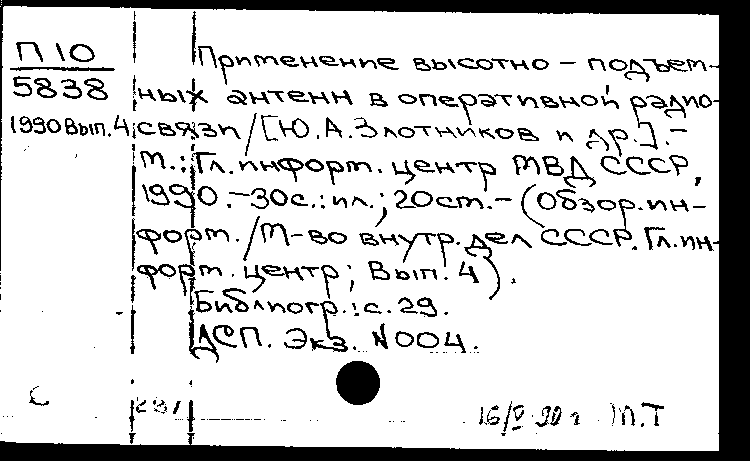 П 10
5838
1990 Вып. 4
Применение высотно-подъем-
ных антенн в оперативной радио-
связи / [Ю. А. Злотников и др.]. -
М.: Гл. информ. центр МВД СССР,
1990. - 30 с.: ил.; 20 см. - (Обзор. ин-
форм. / М-во внутр. дел СССР. Гл. ин-
форм. центр; Вып. 4).
Библиогр.: с. 29.
ДСП. Экз. N 004.
С
281
16/V-90 г М.Т